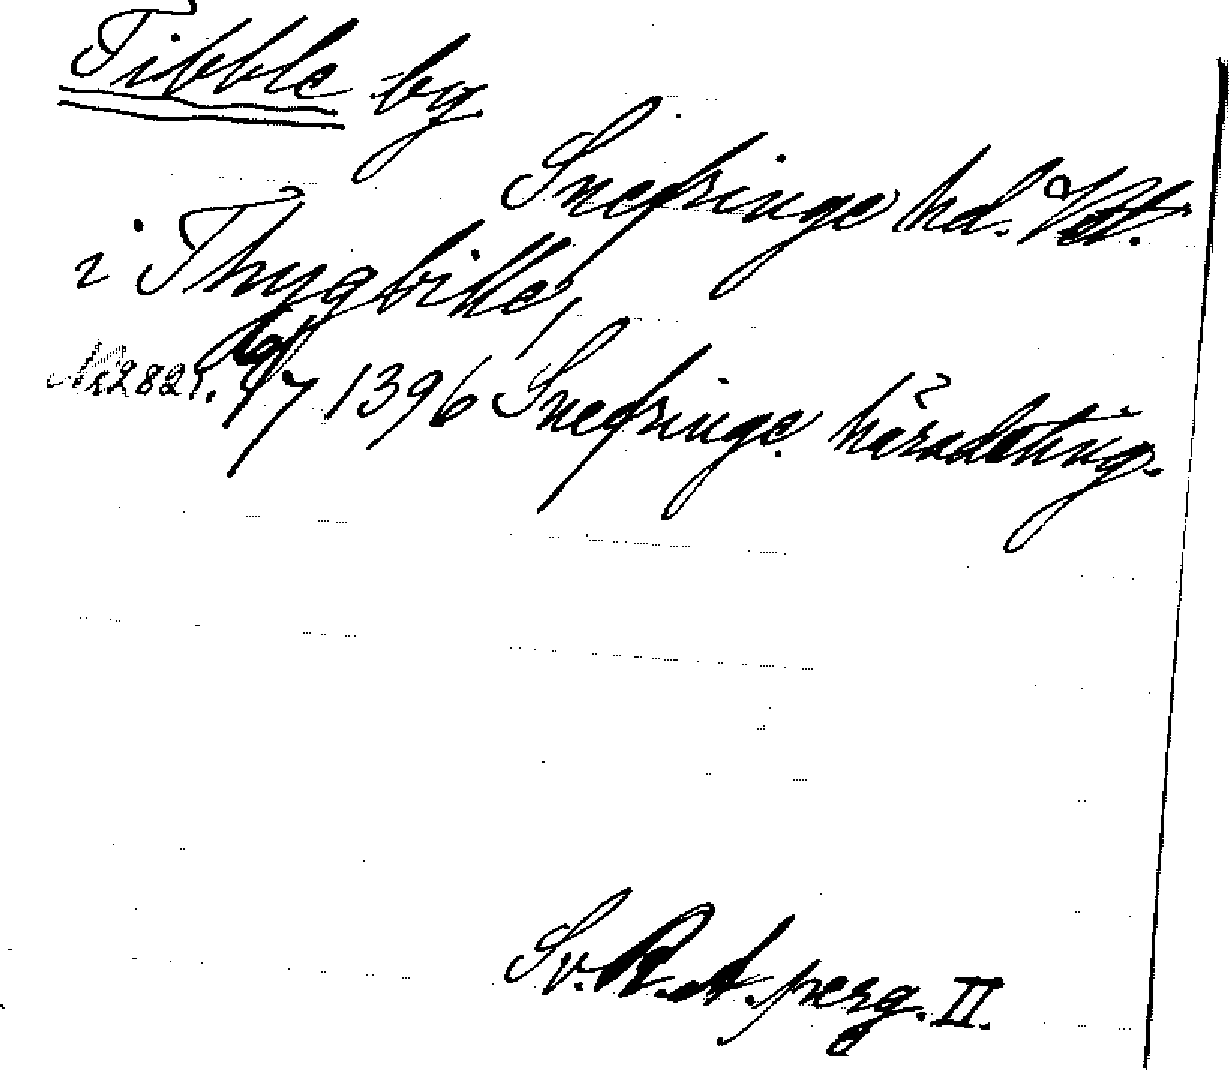 Tibble by
Snefringe hd. Vstm.
i Thygbille,
Nr 2821. 17/7 1396 Snefringe häradsting.
Sv. R. A. perg. II.